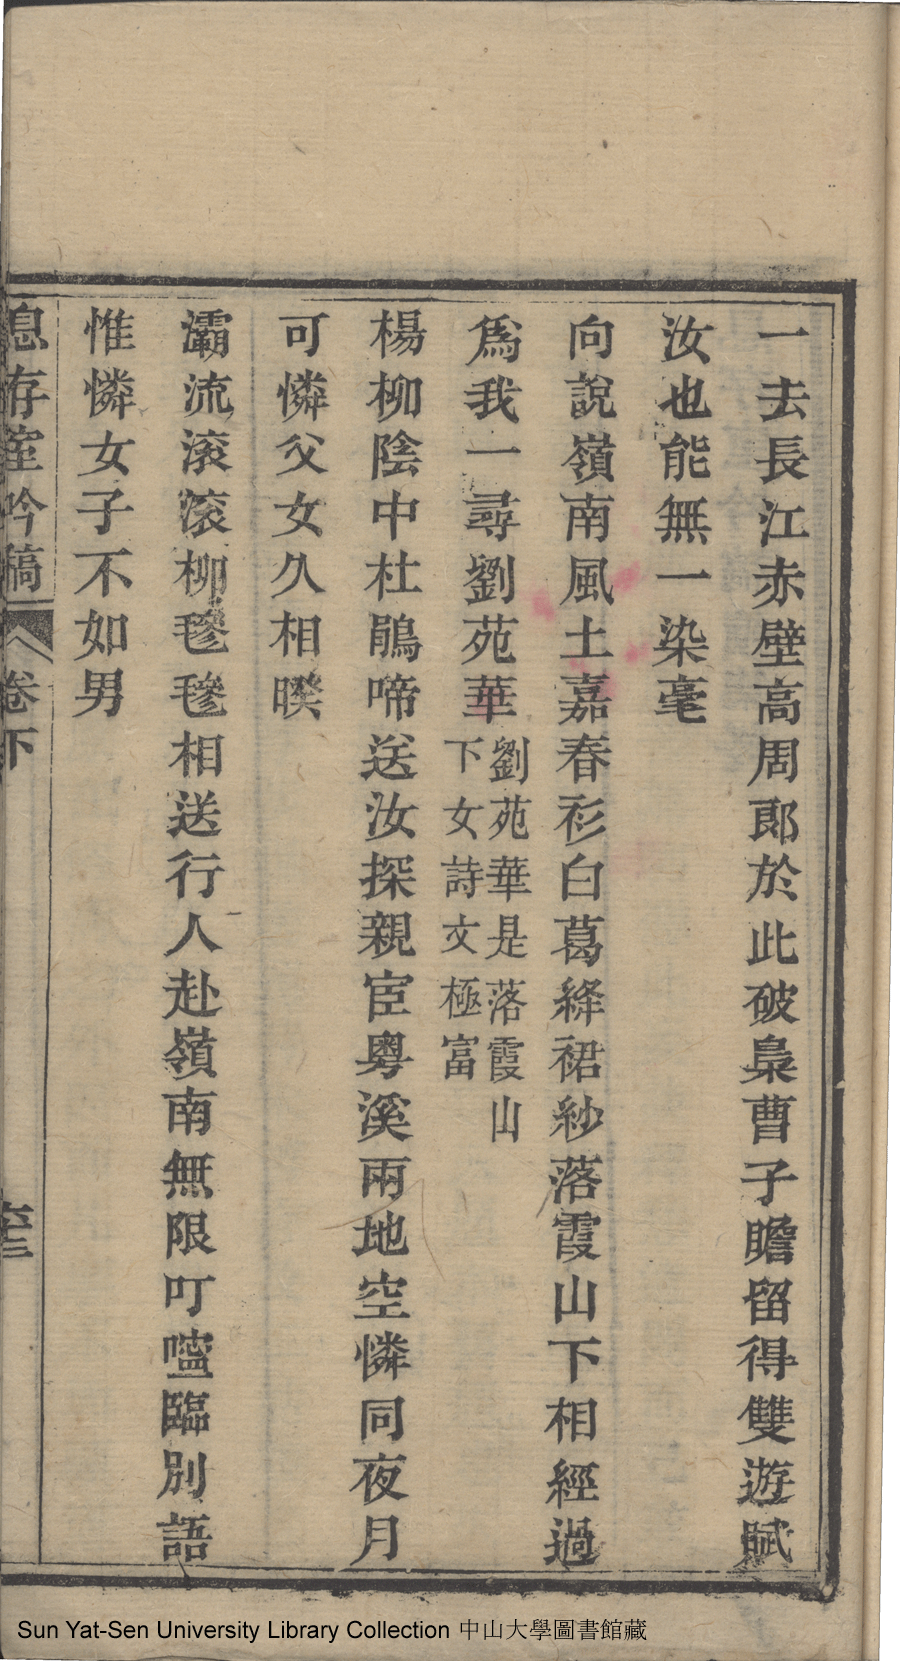 一去長江赤壁高周郎於此破梟曹子瞻留得雙遊賦
汝也能無一染毫
向說嶺南風土嘉春衫白葛絳裙紗落霞山下相經過
為我一尋劉苑華
劉苑華是落霞山
下女詩文極富
楊柳陰中杜鵑啼送汝探親宦粵溪兩地空憐同夜月
可憐父女久相暌
灞流滾滾柳毿毿相送行人赴嶺南無限叮嚀臨別語
惟憐女子不如男
息存室吟稿 卷下 六十三
Sun Yat-Sen University Library Collection 中山大學圖書館藏